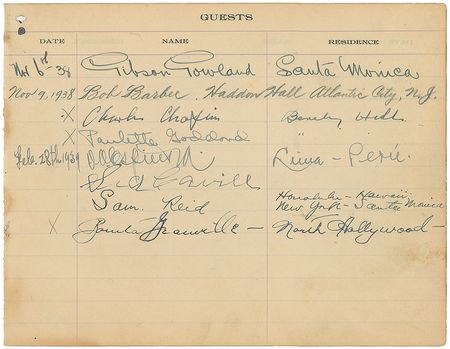 GUESTS
DATE NAME RESIDENCE
Nov 6th 38 Gibson Gowland Santa Monica
Nov 9, 1938 Bob Barber. Haddon Hall Atlantic City, N.J.
X Charles Chaplin Beverly Hills
X Paulette Goddard "
Feb. 28th 1939 Lima - Perú.
Sam. Reid Honolulu - Hawaii
New York - Santa Monica
X Bonita Granville - North Hollywood -